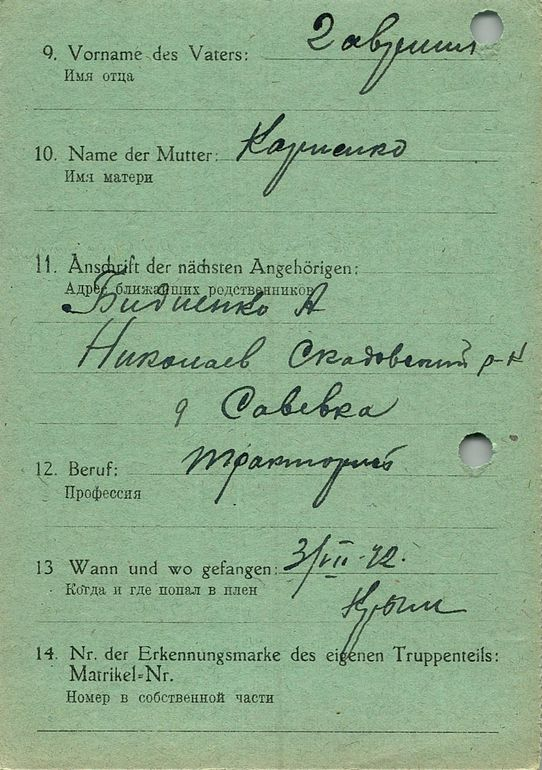 9. Vorname des Vaters:
Имя отца
10. Name der Mutter: Карпенко
Имя матери
11. Anschrift der nächsten Angehörigen:
Адрес ближайших родственников
А
Николаев Скадовский р-н
д Савевка
12. Beruf: тракторист
Профессия
13 Wann und wo gefangen: 3/VII-42.
Когда и где попал в плен
Крым
14. Nr. der Erkennungsmarke des eigenen Truppenteils:
Matrikel=Nr.
Номер в собственной части